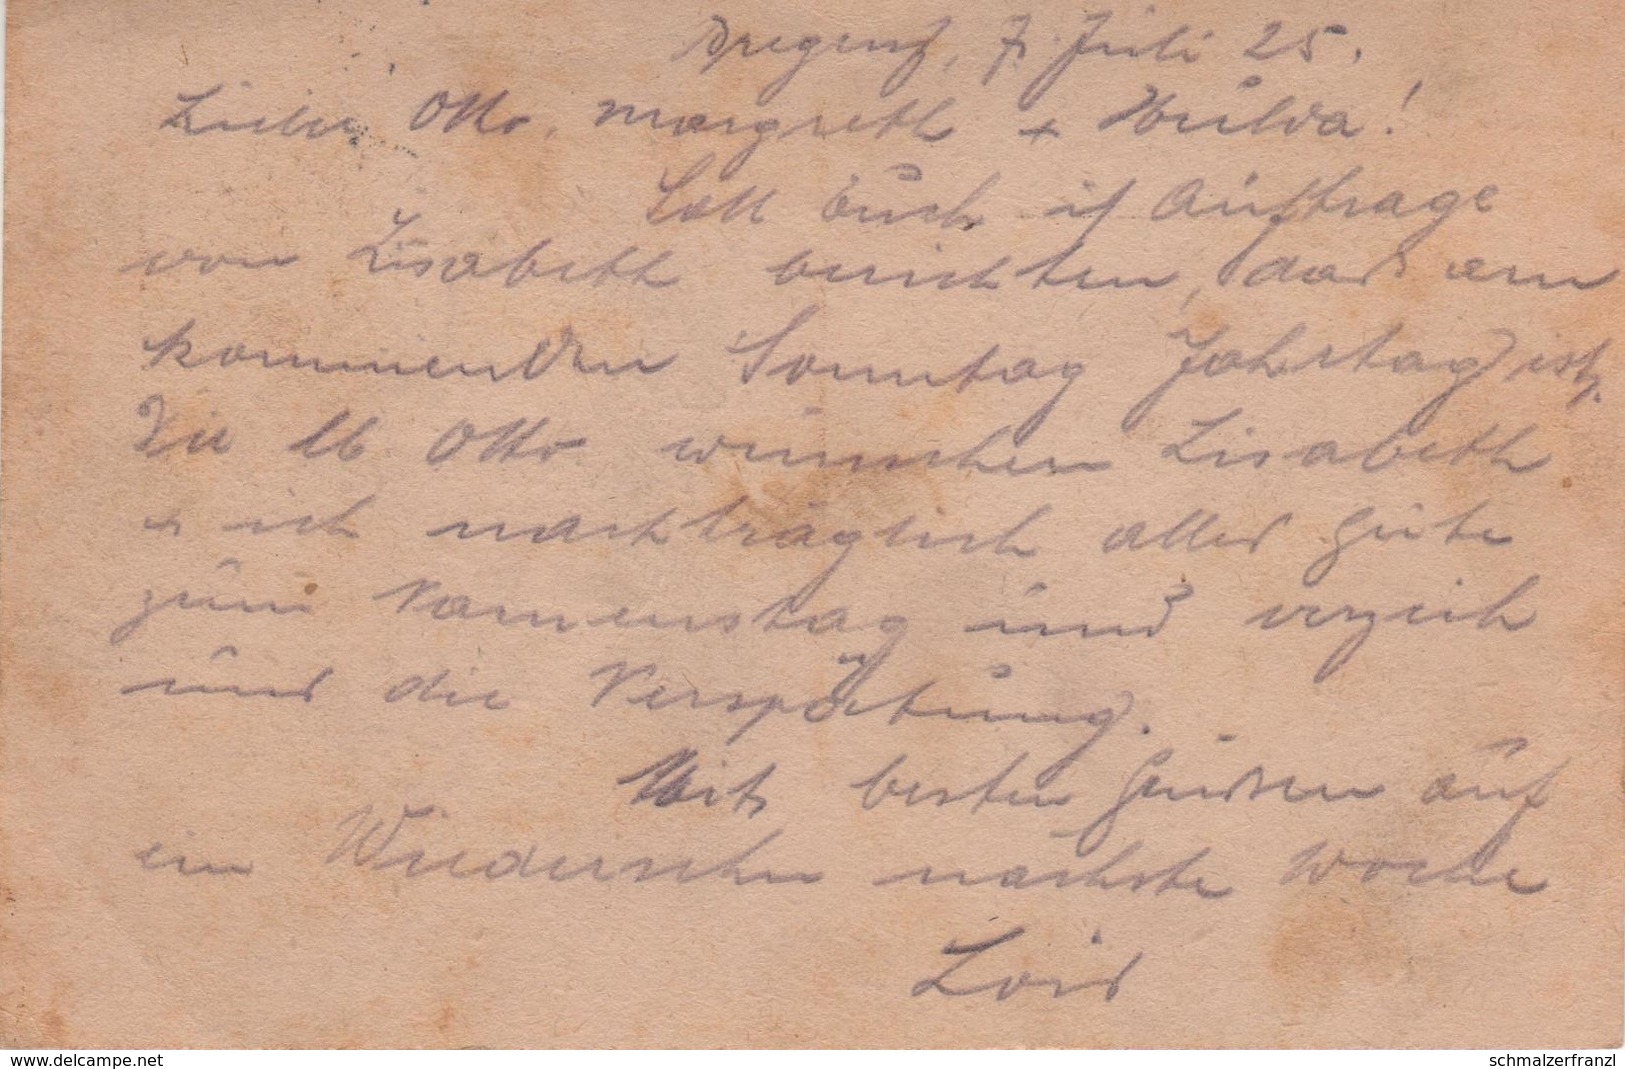 Bregenz, 7. Juli 25.
Lieber Otto, Margreth + Hulda!
Soll Euch if Auftrage
von Lisabeth berichten, das am
kommenden Sonntag Jahrtag ist.
Dir lb Otto wünschen Lisabeth
+ ich nachträglich alles Gute
zum Namenstag und verzeih
uns die Verspätung.
Mit besten Grüssen auf
ein Wiedersehn nächste Woche
Lois
www.delcampe.net
schmalzerfranzl